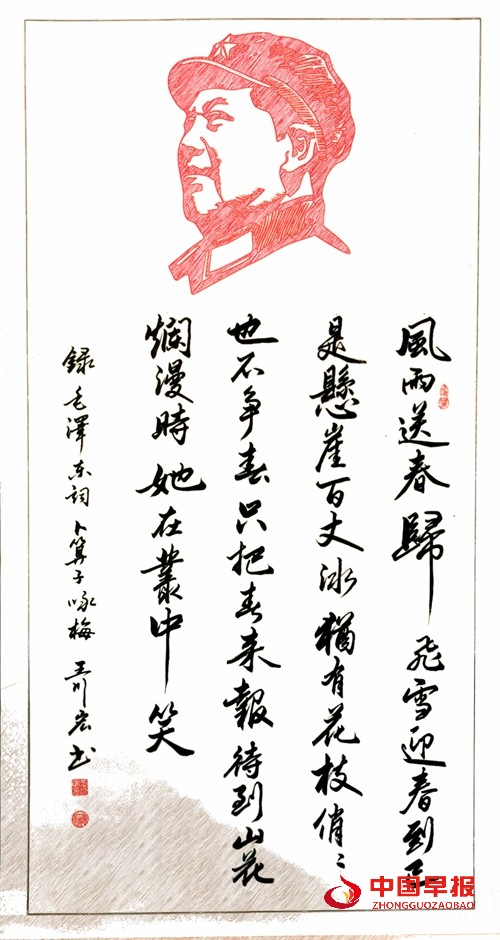 風雨送春歸 飛雪迎春到 已
是懸崖百丈冰猶有花枝俏〻
也不争春只把春来報待到山花
爛漫時她在叢中笑
録毛澤东詞卜算子咏梅 书
中国早报
ZHONGGUOZAOBAO